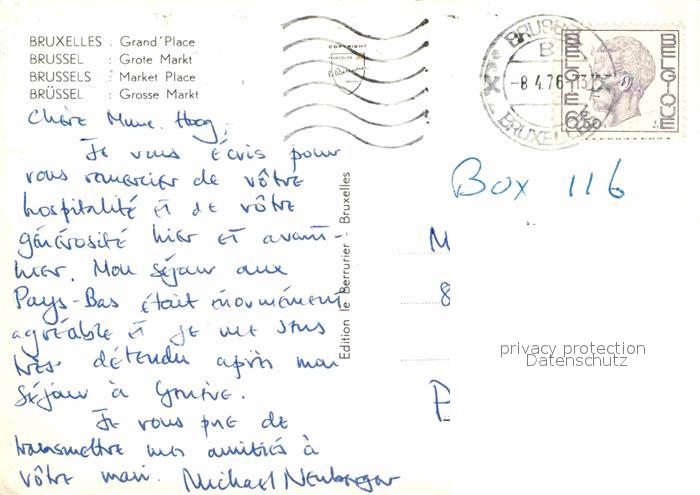 BRUXELLES : Grand'Place
BRUSSEL : Grote Markt
BRUSSELS : Market Place
BRÜSSEL : Grosse Markt
Chère Mme. Hoog,
Je vous écris pour
vous remercier de vôtre
hospitalité et de vôtre
générosité hier et avant-
hier. Mon séjour aux
Pays-Bas était énormément
agréable et je me sens
très détendu après mon
séjour à Genève.
Je vous prie de
transmettre mes amitiés à
vôtre mari. Michael Neuberger
COPYRIGHT
Edition le Berrurier Bruxelles
BRUXEL
-8.4.76-13
BELGIE
BELGIQUE
6F50
Box 116
M
8
P
privacy protection
Datenschutz